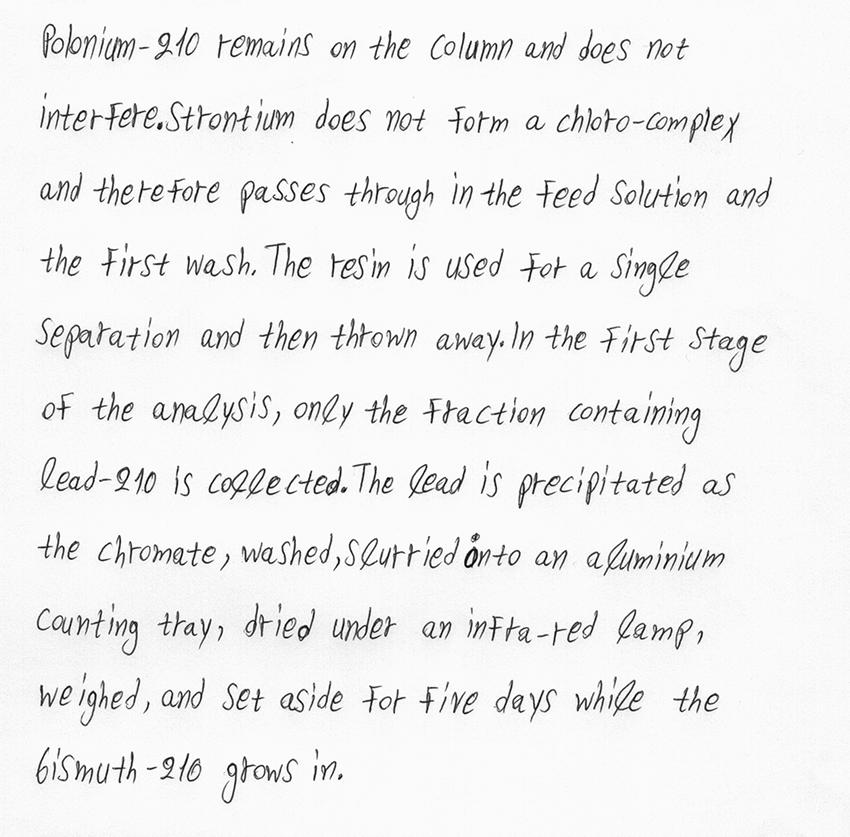 Polonium-210 remains on the column and does not
interfere.Strontium does not form a chloro-complex
and therefore passes through in the feed solution and
the first wash. The resin is used for a single
separation and then thrown away.In the first stage
of the analysis, only the fraction containing
lead-210 is collected.The lead is precipitated as
the chromate, washed,slurried onto an aluminium
counting tray, dried under an infra-red lamp,
weighed, and set aside for five days while the
bismuth-210 grows in.